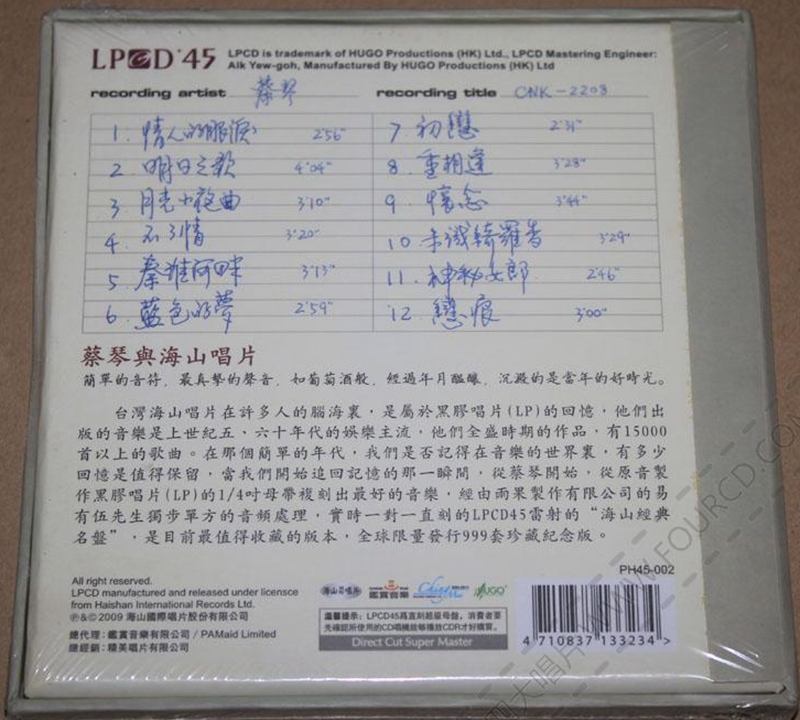 LPCD'45
LPCD is trademark of HUGO Productions (HK) Ltd., LPCD Mastering Engineer:
Aik Yew-goh, Manufactured By HUGO Productions (HK) Ltd
recording artist 蔡琴 recording title CNK-2208
1. 情人的眼淚 2'56"
2 明日之歌 4'04"
3 月光小夜曲 3'10"
4. 不了情 3'20"
5. 秦淮河畔 3'13"
6. 藍色的夢 2'59"
7. 初戀 2'31"
8. 重相逢 3'28"
9 懷念 3'44"
10 未識綺羅香 3'29"
11. 神秘女郎 2'46"
12. 戀痕 3'00"
蔡琴與海山唱片
簡單的音符，最真摯的聲音，如葡萄酒般，經過年月醞釀，沉澱的是當年的好時光。
台灣海山唱片在許多人的腦海裏，是屬於黑膠唱片(LP)的回憶，他們出
版的音樂是上世紀五、六十年代的娛樂主流，他們全盛時期的作品，有15000
首以上的歌曲。在那個簡單的年代，我們是否記得在音樂的世界裏，有多少
回憶是值得保留，當我們開始追回記憶的那一瞬間，從蔡琴開始，從原音製
作黑膠唱片(LP)的1/4吋母帶複刻出最好的音樂，經由雨果製作有限公司的易
有伍先生獨步單方的音頻處理，實時一對一直刻的LPCD45雷射的“海山經典
名盤”，是目前最值得收藏的版本，全球限量發行999套珍藏紀念版。
PH45-002
All right reserved.
LPCD manufactured and released under licensce
from Haishan International Records Ltd.
℗&©2009 海山國際唱片股份有限公司
總代理：鑑賞音樂有限公司 / PAMaid Limited
總經銷：精美唱片有限公司
海山唱片 鑑賞音樂 HUGO
溫馨提示：LPCD45爲直刻超級母盤，消費者要
先確認所使用的CD唱機能够播放CDR才好購買。
Direct Cut Super Master
4 710837 133234 >
WWW.FOURCD.COM